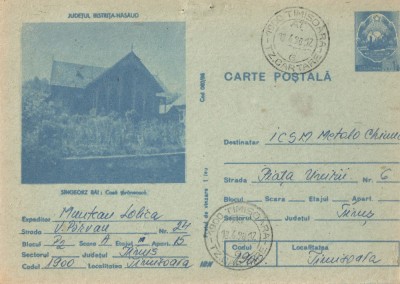 JUDEȚUL BISTRIȚA-NĂSĂUD
SÎNGEORZ BĂI: Casă țărănească
Expeditor Muntean Lolica
Strada V. Pârvan Nr. 24
Blocul P2 Scara A Etajul Apart. 15
Sectorul Județul Timiș
Codul 1900 Localitatea Timișoara
Cod 
Prețul de vînzare 1 leu
1900 TIMIȘOARA
CARTE POȘTALĂ
Destinatar ICSM Metalo Chimice
Strada Piața Unirii Nr. 6
Blocul Scara Etajul Apart.
Sectorul Județul Timiș
Codul Localitatea
1900 Timișoara
1900 TIMIȘOARA